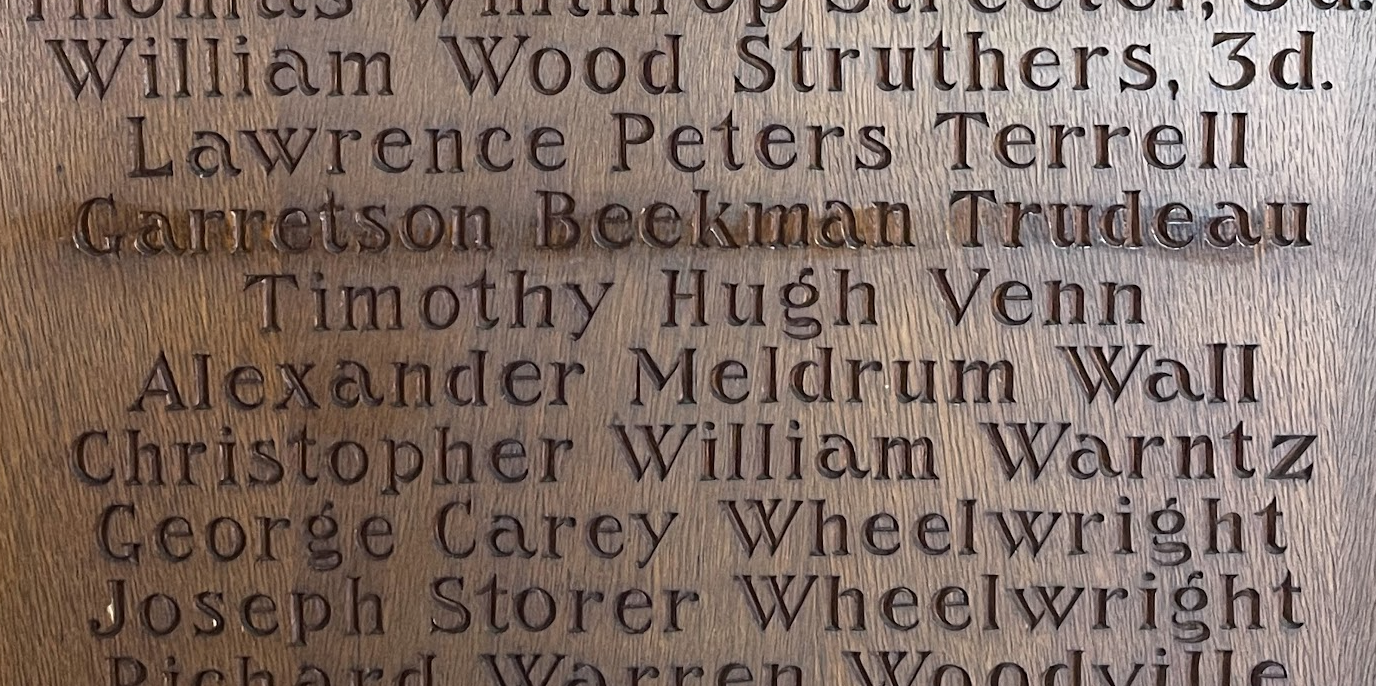 Thomas Winthrop Streeter, 3d.
William Wood Struthers, 3d.
Lawrence Peters Terrell
Garretson Beekman Trudeau
Timothy Hugh Venn
Alexander Meldrum Wall
Christopher William Warntz
George Carey Wheelwright
Joseph Storer Wheelwright
Richard Warren Woodville